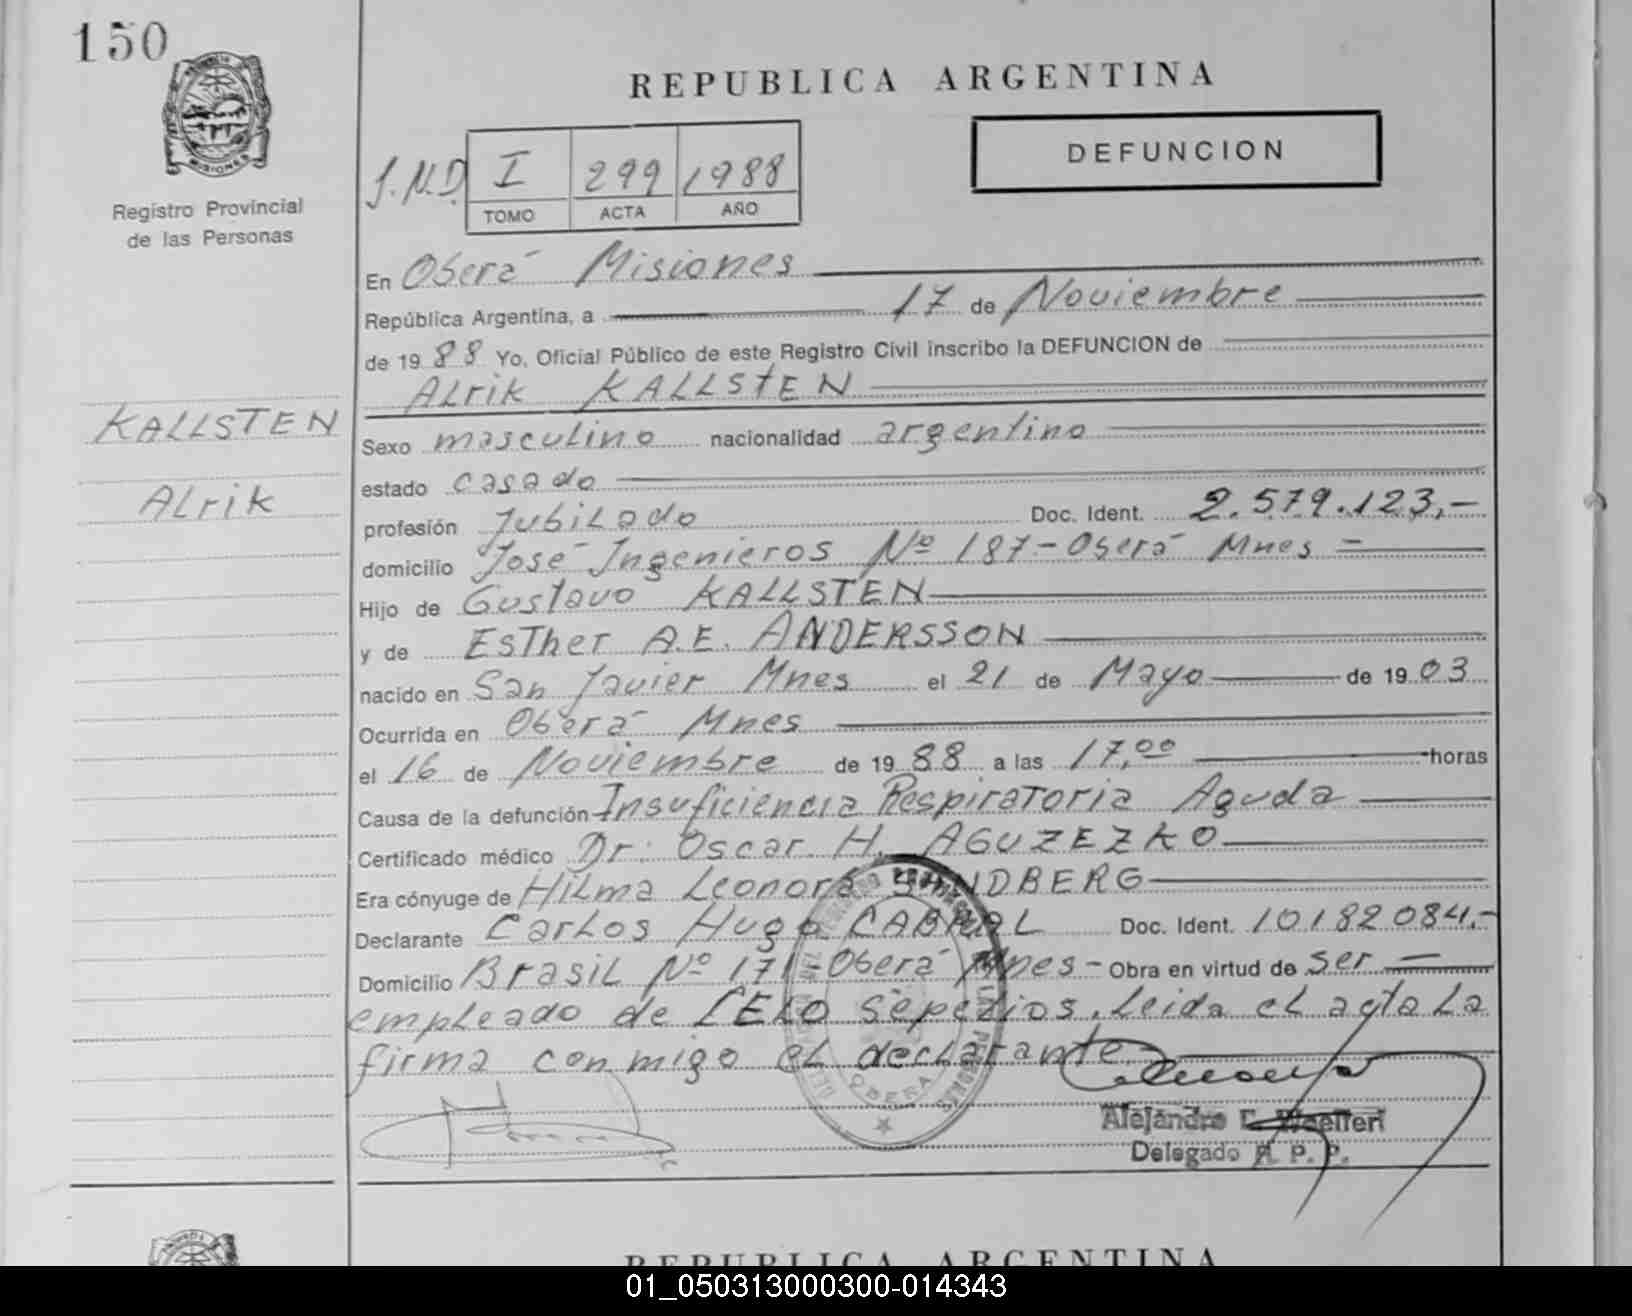 150
MISIONES
Registro Provincial
de las Personas
REPUBLICA ARGENTINA
DEFUNCION
J.N.D. I 299 1988
TOMO ACTA AÑO
En Oberá Misiones
República Argentina, a 17 de Noviembre
de 1988 Yo, Oficial Público de este Registro Civil inscribo la DEFUNCION de
Alrik KALLSTEN
KALLSTEN
Alrik
Sexo masculino nacionalidad argentino
estado casado
profesión Jubilado Doc. Ident. 2.579.123,-
domicilio José Ingenieros Nº 187 - Oberá Mnes -
Hijo de Gustavo KALLSTEN
y de Esther A.E. ANDERSSON
nacido en San Javier Mnes el 21 de Mayo de 1903
Ocurrida en Oberá Mnes
el 16 de Noviembre de 1988 a las 17,00 horas
Causa de la defunción Insuficiencia Respiratoria Aguda
Certificado médico Dr. Oscar H. AGUZEZKO
Era cónyuge de Hilma Leonora SANDBERG
Declarante Carlos Hugo CABRAL Doc. Ident. 10182084,-
Domicilio Brasil Nº 171 - Oberá Mnes - Obra en virtud de ser
empleado de LELO Sepelios. Leida el acta la
firma conmigo el declarante.
OBERA
Alejandro
Delegado R. P. P.
REPUBLICA ARGENTINA
01_050313000300-014343